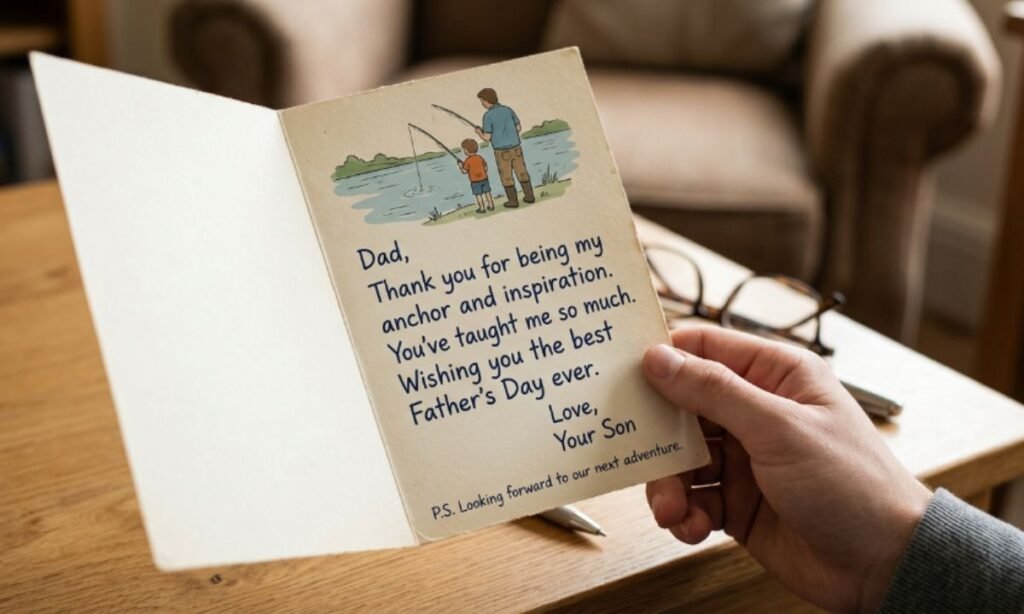 Dad,
Thank you for being my
anchor and inspiration.
You've taught me so much.
Wishing you the best
Father's Day ever.
Love,
Your Son
P.S. Looking forward to our next adventure.